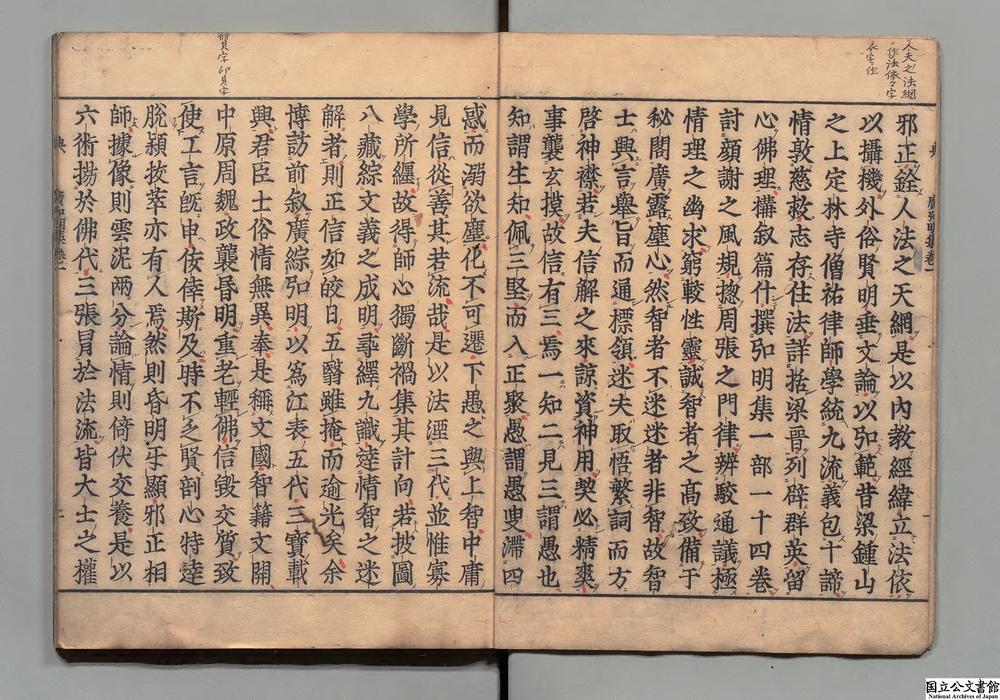 人天之法網
作法像々字
衣字仕
典 廣弘明集卷一 一
邪正銓人法之天網是以內教經緯立法依
以攝機外俗賢明垂文論以弘範昔梁鍾山
之上定林寺僧祐律師學統九流義包十諦
情敦慈救志存住法詳括梁晉列辟群英留
心佛理搆叙篇什撰弘明集一部一十四卷
討顔謝之風規摠周張之門律辨駁通議極
情理之幽求窮較性靈誠智者之高致備于
秘閣廣露塵心然智者不迷迷者非智故智
士興言舉旨而通標領迷夫取悟繫詞而方
啓神襟若夫信解之來諒資神用契必精爽
事襲玄摸故信有三焉一知二見三謂愚也
知謂生知佩三堅而入正聚愚謂愚叟滯四
惑而溺欲塵化不可遷下愚之與上智中庸
見信從善其若流哉是以法湮三代並惟寡
學所纏故得師心獨斷禍集其計向若披圖
八藏綜文義之成明尋繹九識達情智之迷
解者則正信如皎日五翳雖掩而逾光矣余
博訪前叙廣綜弘明以爲江表五代三寶載
興君臣士俗情無異奉是稱文國智籍文開
中原周魏政襲昏明重老輕佛信毀交質致
使工言旣申佞倖斯及時不乏賢剖心特達
脫穎拔萃亦有人焉然則昏明互顯邪正相
師據像則雲泥兩分論情則倚伏交養是以
六術揚於佛代三張冐於法流皆大士之權
典 廣弘明集卷一 二
国立公文書館
National Archives of Japan